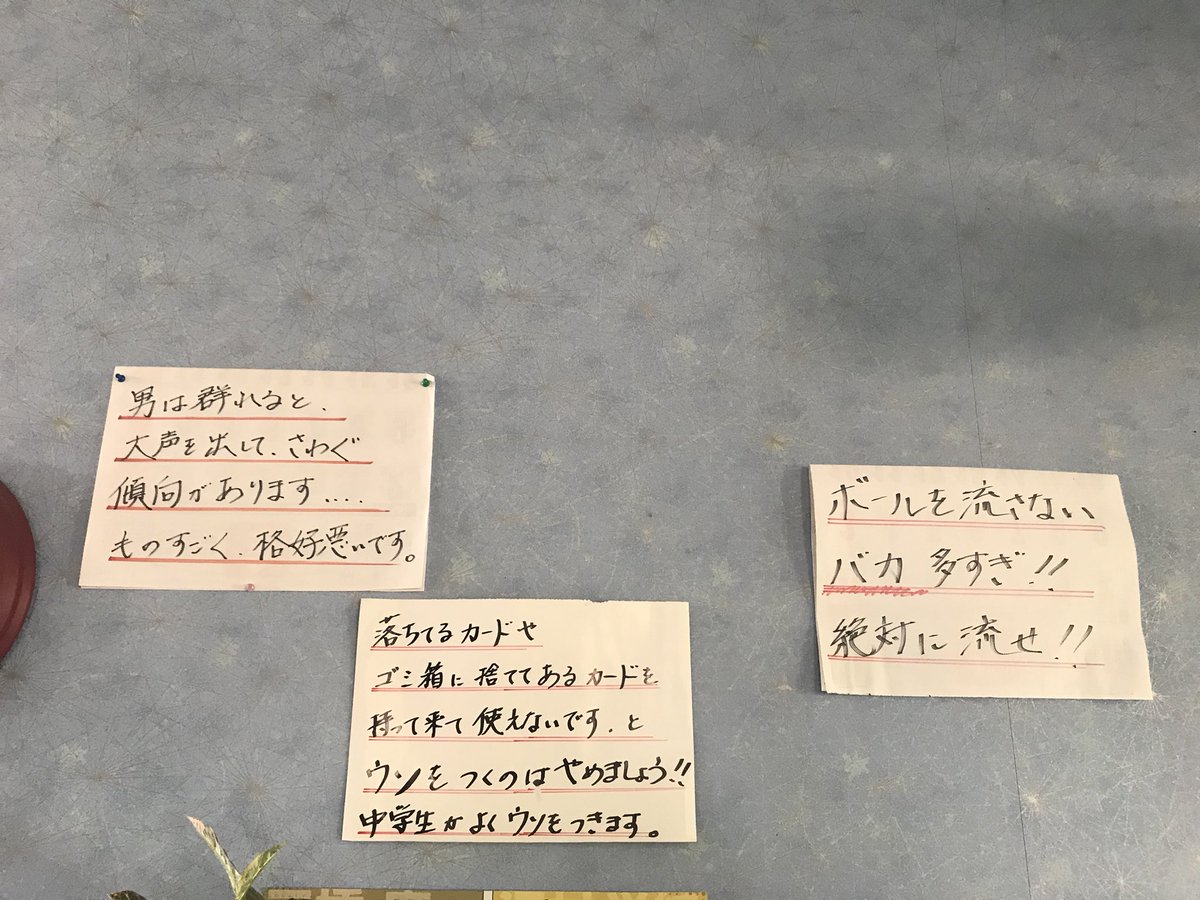 男は群れると、
大声を出して、さわぐ
傾向があります....
ものすごく、格好悪いです。
落ちてるカードや
ゴミ箱に捨ててあるカードを
持って来て使えないです、と
ウソをつくのはやめましょう!!
中学生がよくウソをつきます。
ボールを流さない
バカ多すぎ!!
絶対に流せ!!